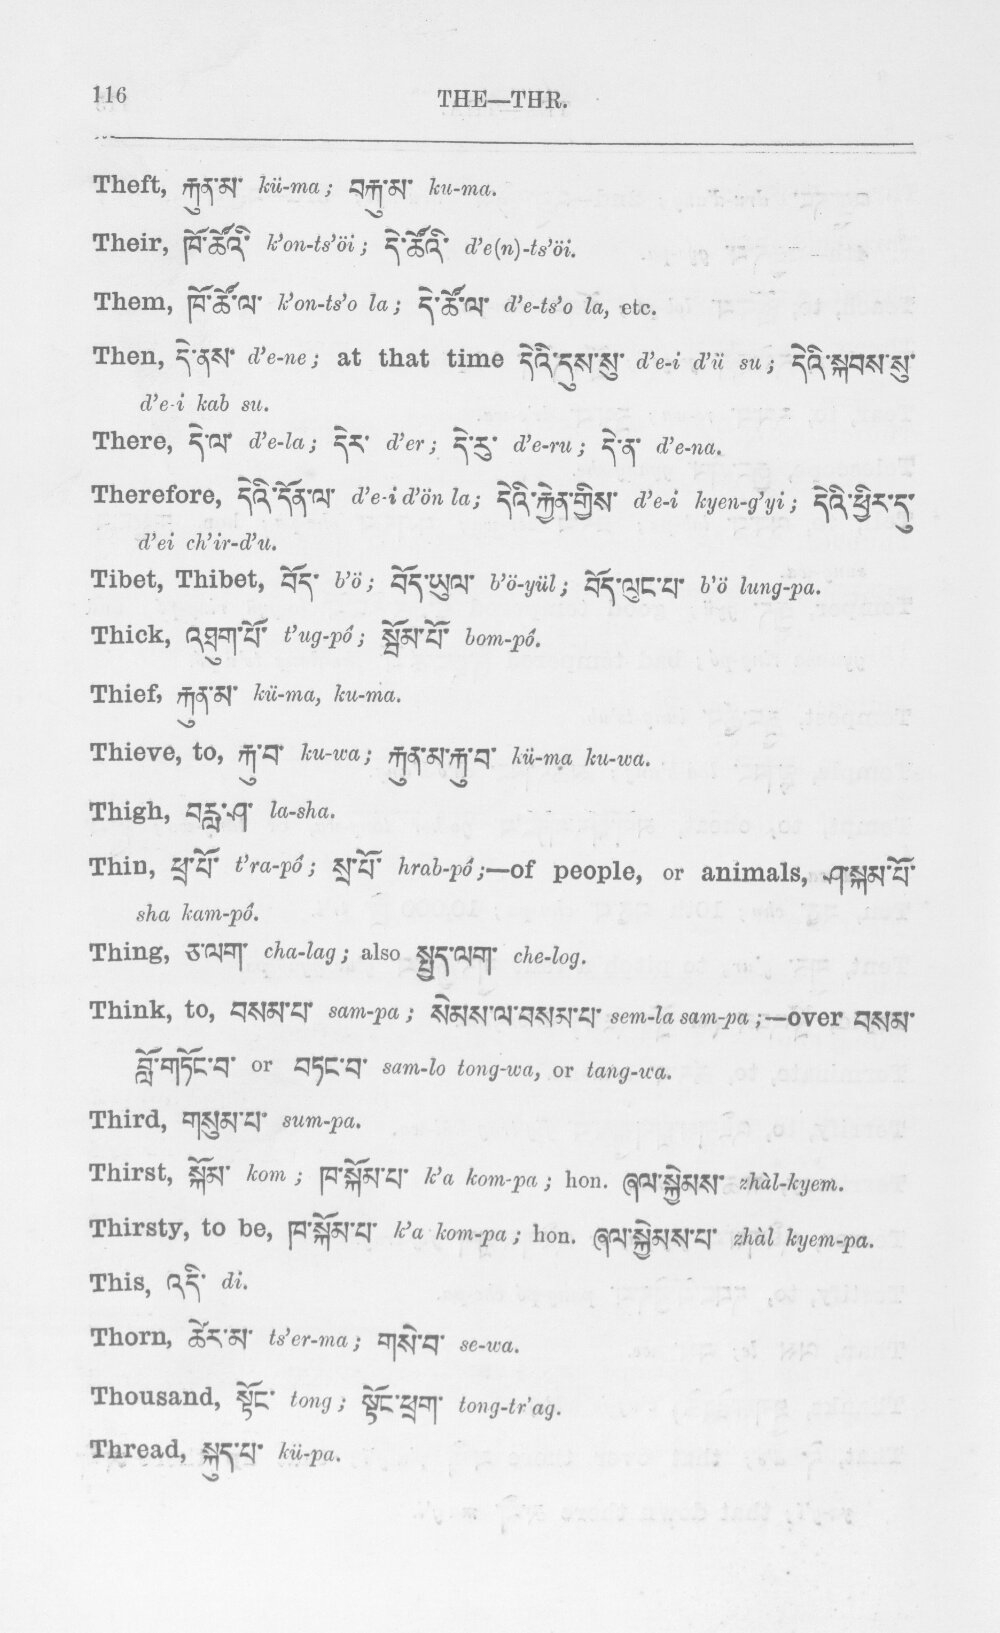 116
THE—THR.
Theft, རྐུན་མ་ kü-ma; བརྐུ་མ་ ku-ma.
Their, ཁོ་ཚོའི་ k'on-ts'öi; དེ་ཚོའི་ d'e(n)-ts'öi.
Them, ཁོ་ཚོ་ལ་ k'on-ts'o la; དེ་ཚོ་ལ་ d'e-ts'o la, etc.
Then, དེ་ནས་ d'e-ne; at that time དེའི་དུས་སུ་ d'e-i d'ü su; དེའི་སྐབས་སུ་
d'e-i kab su.
There, དེ་ལ་ d'e-la; དེར་ d'er; དེ་རུ་ d'e-ru; དེ་ན་ d'e-na.
Therefore, དེའི་དོན་ལ་ d'e-i d'ön la; དེའི་རྐྱེན་གྱིས་ d'e-i kyen-g'yi; དེའི་ཕྱིར་དུ་
d'ei ch'ir-d'u.
Tibet, Thibet, བོད་ b'ö; བོད་ཡུལ་ b'ö-yül; བོད་ལུང་པ་ b'ö lung-pa.
Thick, འཐུག་པོ་ t'ug-pó; སྦོམ་པོ་ bom-pó.
Thief, རྐུན་མ་ kü-ma, ku-ma.
Thieve, to, རྐུ་བ་ ku-wa; རྐུན་མ་རྐུ་བ་ kü-ma ku-wa.
Thigh, བརླ་ཤ་ la-sha.
Thin, ཕྲ་པོ་ t'ra-pó; སྲ་པོ་ hrab-pó;—of people, or animals, ཤ་སྐམ་པོ་
sha kam-pó.
Thing, ཅ་ལག་ cha-lag; also སྤྱད་ལག་ che-log.
Think, to, བསམ་པ་ sam-pa; སེམས་ལ་བསམ་པ་ sem-la sam-pa;—over བསམ་
བློ་གཏོང་བ་ or བཏང་བ་ sam-lo tong-wa, or tang-wa.
Third, གསུམ་པ་ sum-pa.
Thirst, སྐོམ་ kom; ཁ་སྐོམ་པ་ k'a kom-pa; hon. ཞལ་སྐྱེམས་ zhàl-kyem.
Thirsty, to be, ཁ་སྐོམ་པ་ k'a kom-pa; hon. ཞལ་སྐྱེམས་པ་ zhàl kyem-pa.
This, འདི་ di.
Thorn, ཚེར་མ་ ts'er-ma; གསེ་བ་ se-wa.
Thousand, སྟོང་ tong; སྟོང་ཕྲག་ tong-tr'ag.
Thread, སྐུད་པ་ kü-pa.